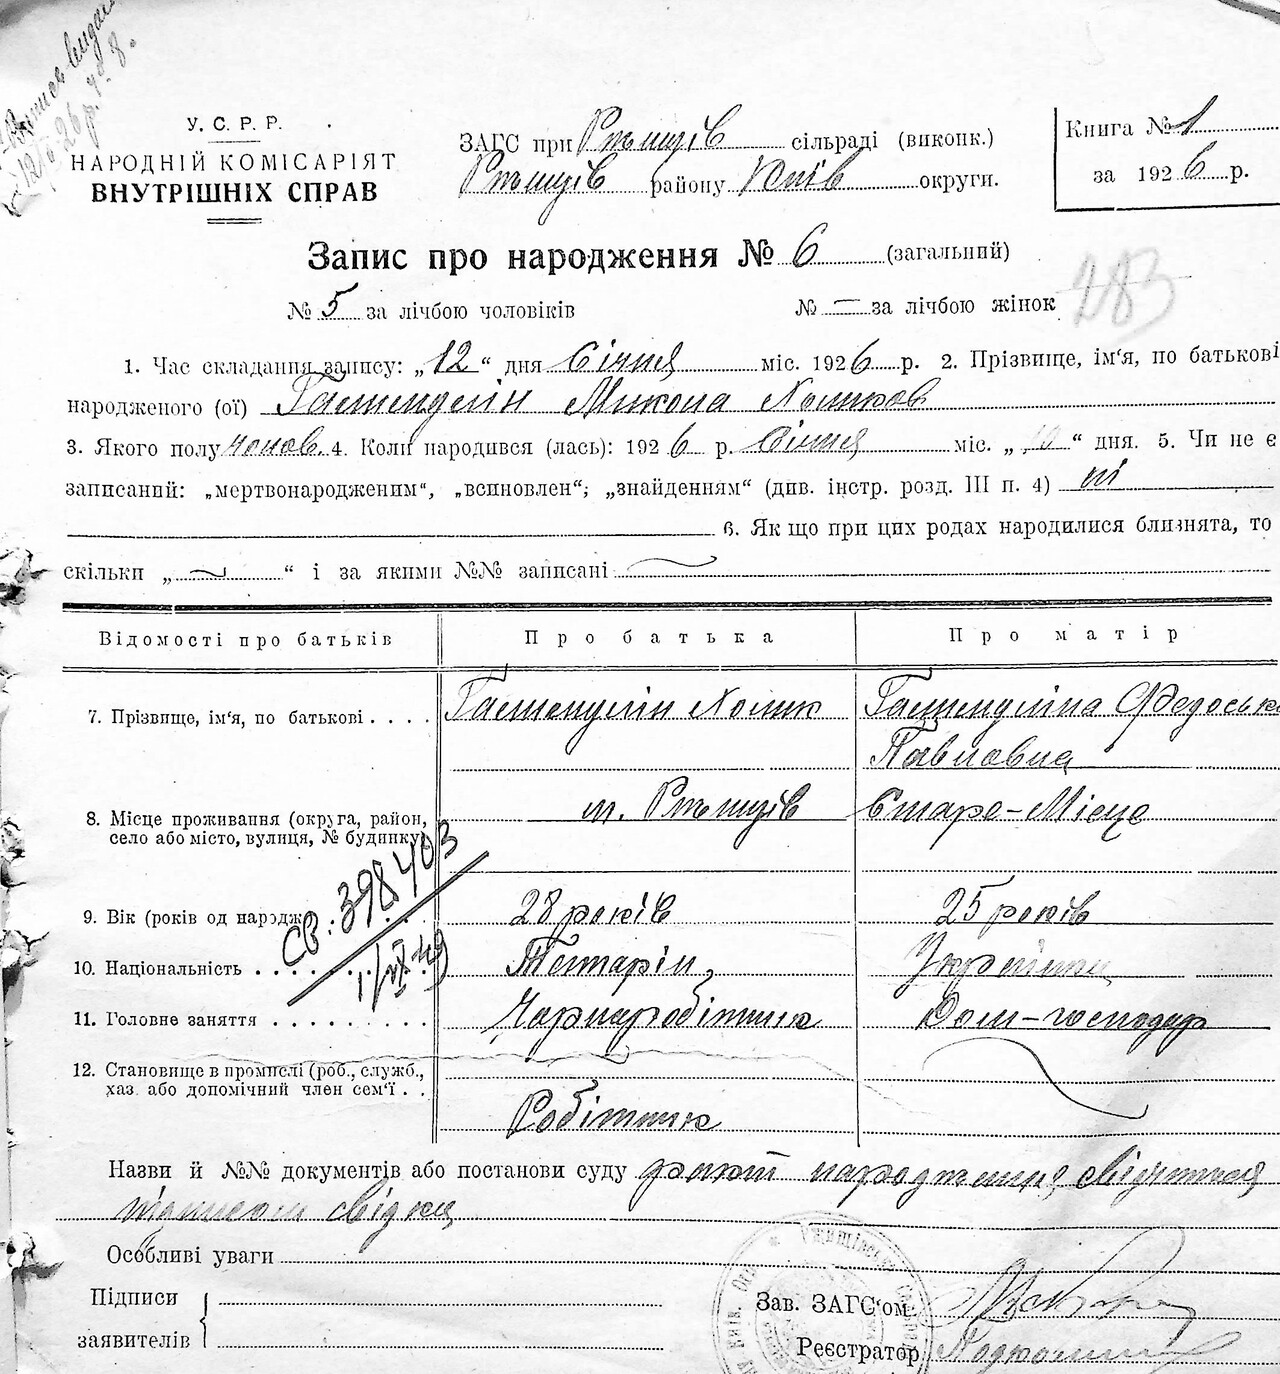 Випись видана
12/I 26 р. № 8.
У. С. Р. Р.
НАРОДНІЙ КОМІСАРІЯТ
ВНУТРІШНІХ СПРАВ
ЗАГС при Ржищів сільраді (виконк.)
Ржищів району Київ округи.
Книга № 1
за 1926 р.
Запис про народження № 6 (загальний)
№ 5 за лічбою чоловіків № — за лічбою жінок
283
1. Час складання запису: „12“ дня Січня міс. 1926 р. 2. Прізвище, ім‘я, по батькові
народженого (ої) Микола
3. Якого полу чолов. 4. Коли народився (лась): 1926 р. Січня міс. „10“ дня. 5. Чи не є
записаний: „мертвонародженим“, „всиновлен“; „знайденням“ (див. інстр. розд. III п. 4) ні
6. Як що при цих родах народилися близнята, то
скільки „ “ і за якими №№ записані
Відомості про батьків Про батька Про матір
7. Прізвище, ім‘я, по батькові . . . .
Федоська
Павловна
8. Місце проживання (округа, район,
село або місто, вулиця, № будинку)
м. Ржищів Старе-Місце
СВ: 398403
1/IX 49
9. Вік (років од народж 28 років 25 років
10. Національність . . . Татарін Українка
11. Головне заняття . . . . . . . . . Чарнаробітник Дом-господар
12. Становище в промислі (роб., служб.,
хаз. або допомічний член сем‘ї . .
Робітник
Назви й №№ документів або постанови суду факт народження свідчиться
підписом свідка
Особливі уваги
Підписи
заявителів
Зав. ЗАГС‘ом
Реєстратор